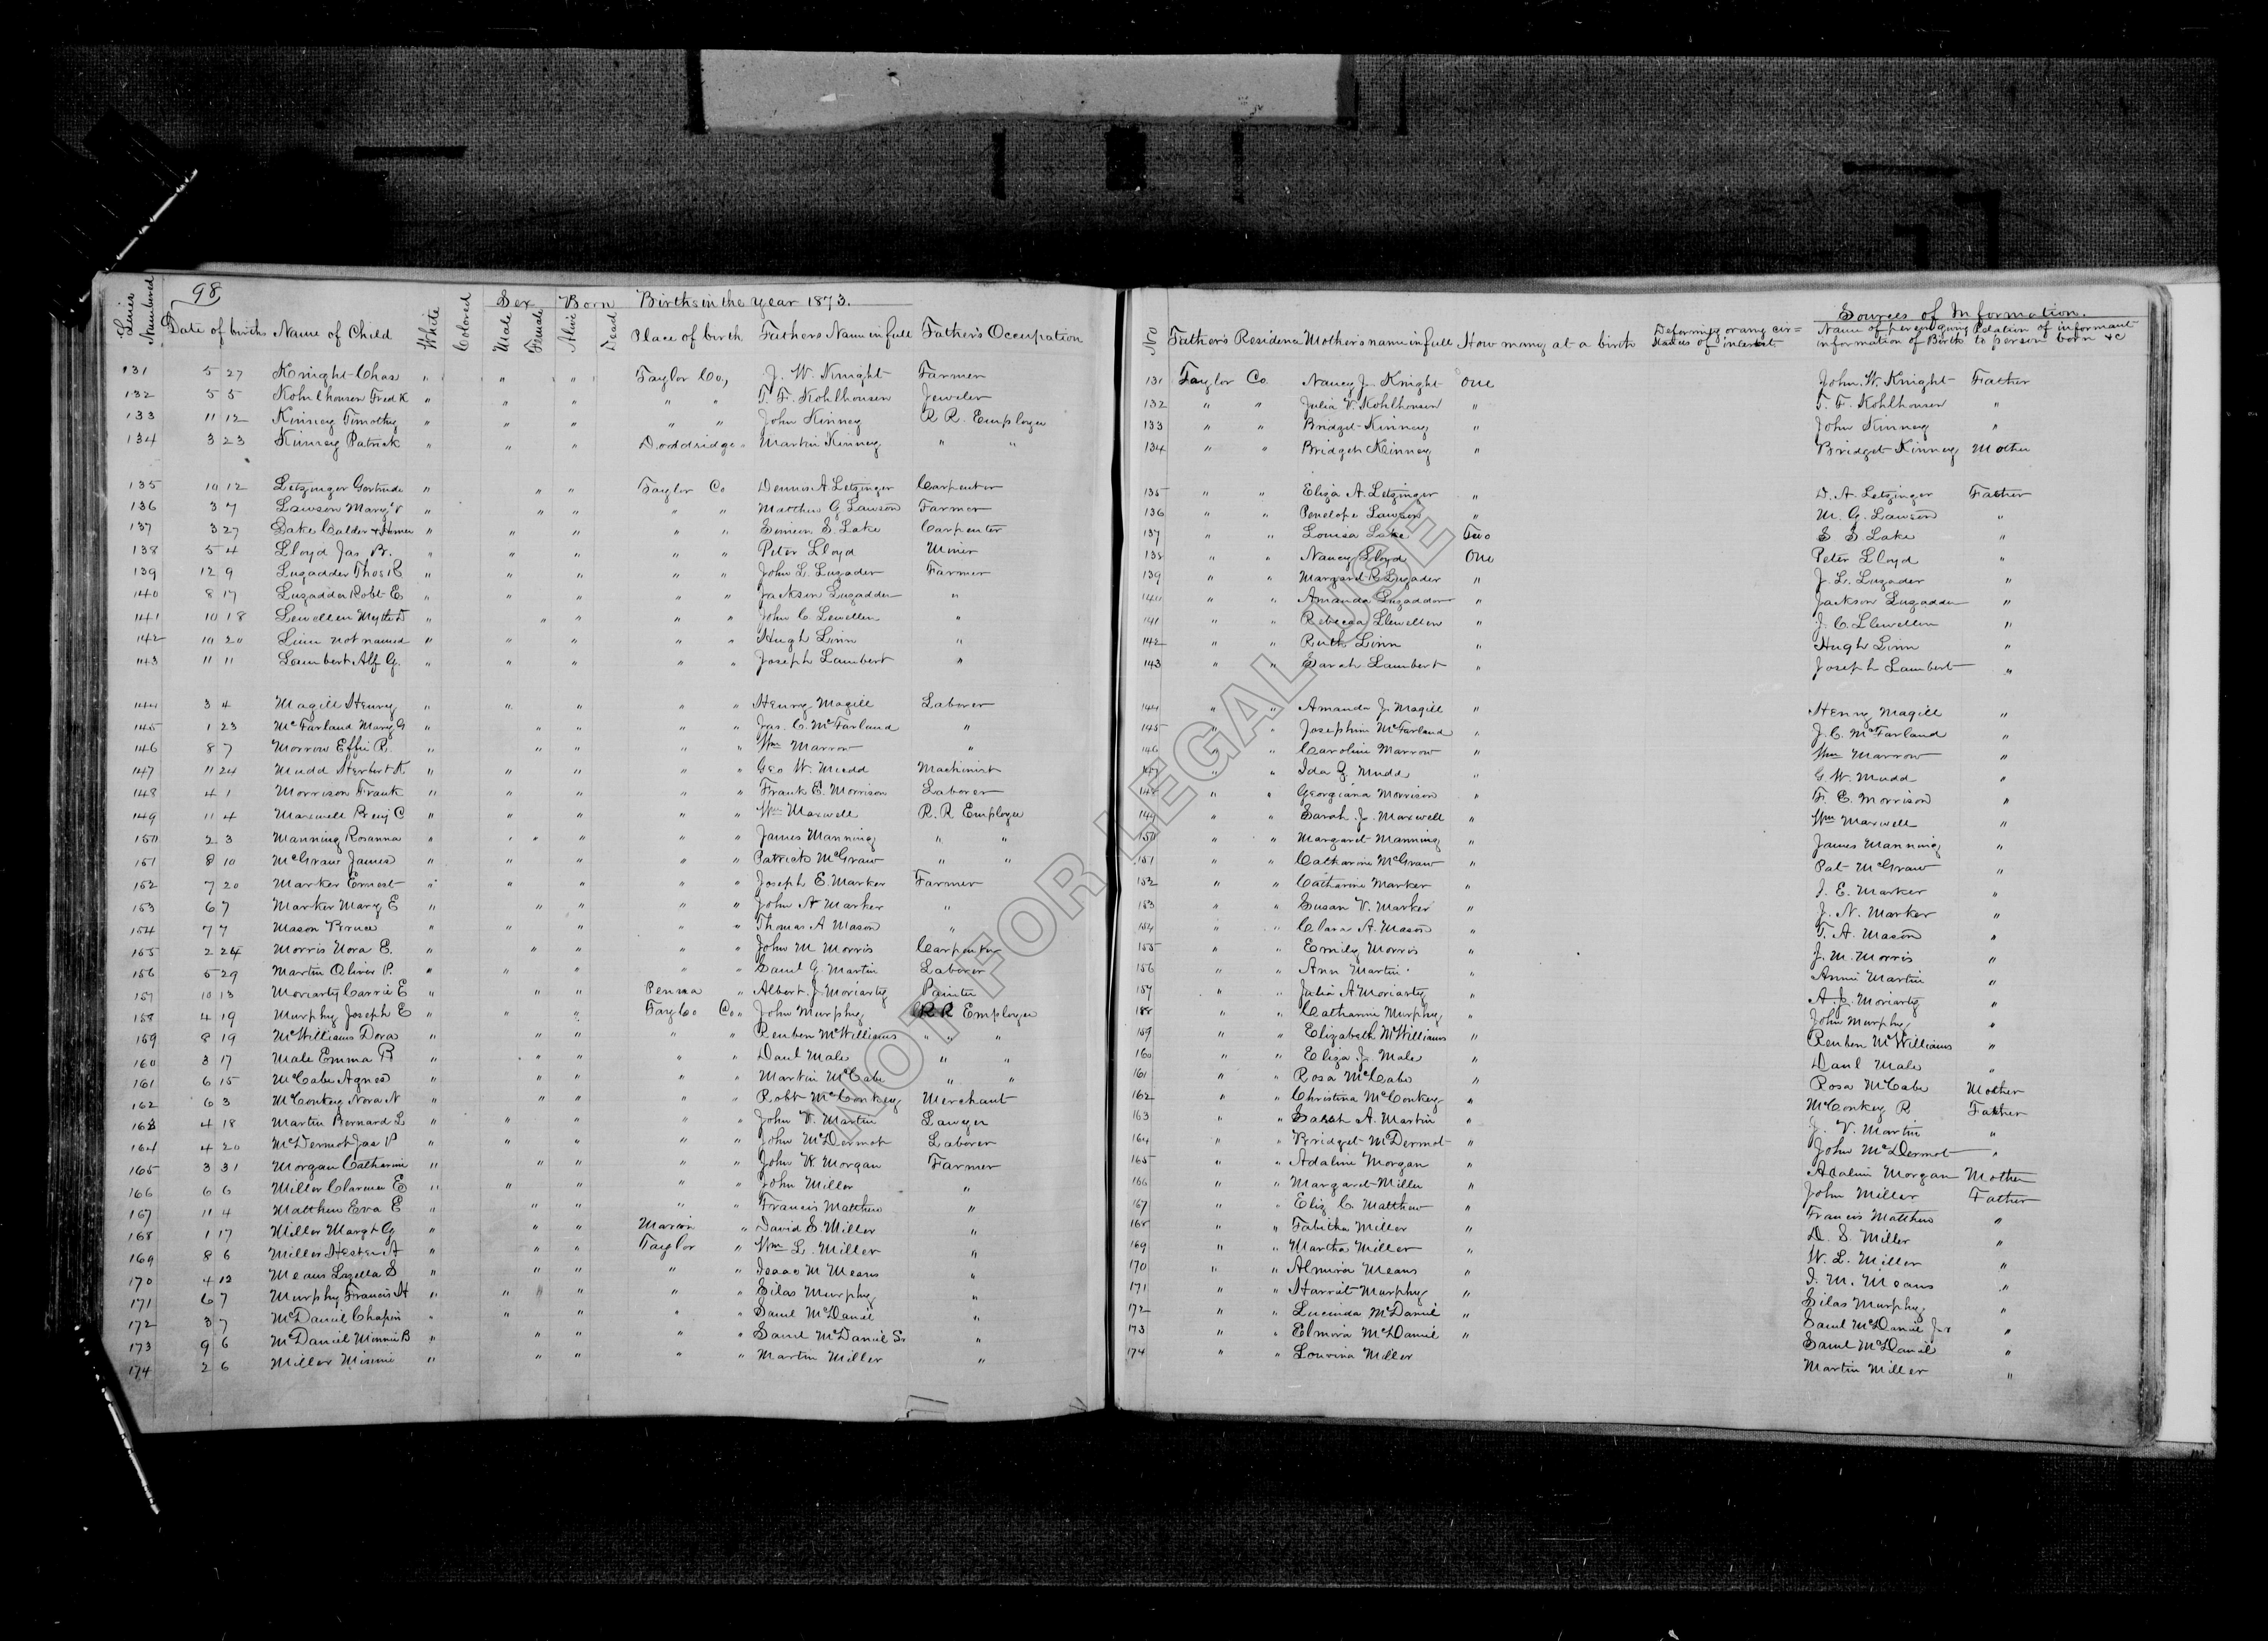 98
Births in the year 1873.
Lines Numbered Date of birth Name of Child White Colored Sex Male Female Born Alive Dead Place of birth Fathers Name in full Father's Occupation
131 5 27 Knight Chas " " " Taylor Co, J. W. Knight Farmer
132 5 5 Kohlhousen Fred K " " " " " T. F. Kohlhousen Jeweler
133 11 12 Kinney Timothy " " " " " John Kinney R R. Employee
134 3 23 Kinney Patrick " " " Doddridge " Martin Kinney " "
135 10 12 Letzinger Gertrude " " " Taylor Co Dennis A Letzinger Carpenter
136 3 7 Lawson Mary V " " " " " Matthew G Lawson Farmer
137 3 27 Lake Calder & Homer " " " " " Simeon S. Lake Carpenter
138 5 4 Lloyd Jas B. " " " " " Peter Lloyd Miner
139 12 9 Lugadder Thos R " " " " " John L. Lugader Farmer
140 8 17 Lugadder Robt E " " " " " Jackson Lugadder "
141 10 18 Lewellen " " " " " John C Lewellen "
142 10 20 Linn not named " " " " " Hugh Linn "
143 11 11 Lambert Alf G. " " " " " Joseph Lambert "
144 3 4 Magill Henry " " " " " Henry Magill Laborer
145 1 23 McFarland Mary G " " " " " Jas. C. McFarland "
146 8 7 Morrow Effie B. " " " " " Wm Marrow "
147 11 24 Mudd Herbert K " " " " " Geo W. Mudd Machinist
148 4 1 Morrison Frank " " " " " Frank E. Morrison Laborer
149 11 4 Maxwell Benj C " " " " " Wm Maxwell R. R Employee
150 2 3 Manning Rosanna " " " " " James Manning " "
151 8 10 McGraw James " " " " " Patrick McGraw " "
152 7 20 Marker Ernest " " " " " Joseph E. Marker Farmer
153 6 7 Marker Mary E " " " " " John N Marker "
154 7 7 Mason Bruce " " " " " Thomas A Mason "
155 2 24 Morris Nora E. " " " " " John M Morris Carpenter
156 5 29 Martin Oliver P. " " " " " Saml G. Martin Laborer
157 10 13 Moriarty Carrie E " " " Penna " Albert. J. Moriarty Painter
158 4 19 Murphy Joseph E " " " Taylo Co " John Murphy R R Employee
159 8 19 McWilliams Dora " " " " " Reuben McWilliams " " "
160 3 17 Male Emma B " " " " " Danl Male " "
161 6 15 McCabe Agnes " " " " " Martin McCabe " "
162 6 3 McConkey Nora N " " " " " Robt McConkey Merchant
163 4 18 Martin Bernard L " " " " " John V. Martin Lawyer
164 4 20 McDermot Jas P " " " " " John McDermot Laborer
165 3 31 Morgan Catharine " " " " " John W. Morgan Farmer
166 6 6 Miller Clarence E " " " " " John Miller "
167 11 4 Matthew Eva E " " " " " Francis Matthew "
168 1 17 Miller Margt G " " " Marion " David S. Miller "
169 8 6 Miller Hester A " " " Taylor " Wm L. Miller "
170 4 12 Means Lazella S " " " " " Isaac M Means "
171 6 7 Murphy Francis H " " " " " Silas Murphy "
172 3 7 McDaniel Chapin " " " " " Saml McDaniel "
173 9 6 McDaniel Minnie B " " " " " Saml McDaniel Sr "
174 2 6 Miller Minnie " " " " " Martin Miller "
Sources of Information.
No Father's Residence Mothers name in full How many at a birth Deformity or any cir= stances of interest Name of person giving information of Birth Relation of informant to person born &c
131 Taylor Co. Nancy J. Knight One John. W. Knight Father
132 " " Julia V. Kohlhousen " T. F. Kohlhousen "
133 " " Bridget Kinney " John Kinney "
134 " " Bridget Kinney " Bridget Kinney Mother
135 " " Eliza A. Letzinger " D. A. Letzinger Father
136 " " Penelope Lawson " M. G. Lawson "
137 " " Louisa Lake Two S. S. Lake "
138 " " Nancy Lloyd One Peter Lloyd "
139 " " Margaret R Lugader " J. L. Lugader "
140 " " Amanda Lugaddor " Jackson Lugadder "
141 " " Rebecca Llewellen " J. C. Llewellen "
142 " " Ruth Linn " Hugh Linn "
143 " " Sarah Lambert " Joseph Lambert "
144 " " Amanda J. Magill " Henry Magill "
145 " " Josephine McFarland " J. C. McFarland "
146 " Caroline Marrow " Wm Marrow "
147 " " Ida Z. Mudd " G. W. Mudd "
148 " " Georgiana Morrison " F. E. Morrison "
149 " " Sarah. J. Maxwell " Wm Maxwell "
150 " " Margaret Manning " James Manning "
151 " " Catharine McGraw " Pat McGraw "
152 " " Catharine Marker " J. E. Marker "
153 " " Susan V. Marker " J. N. Marker "
154 " " Clara A. Mason " T. A. Mason "
155 " " Emily Morris " J. M. Morris "
156 " " Ann Martin " Annie Martin "
157 " " Julia A Moriarty " A. J. Moriarty "
158 " " Catharine Murphy " John Murphy "
159 " " Elizabeth McWilliams " Reuben McWilliams "
160 " " Eliza J. Male " Danl Male "
161 " " Rosa McCabe " Rosa McCabe Mother
162 " " Christina McConkey " McConkey R Father
163 " " Sarah A. Martin " J. V. Martin "
164 " " Bridget McDermot " John McDermot "
165 " " Adaline Morgan " Adaline Morgan Mother
166 " " Margaret Miller " John Miller Father
167 " " Eliz C. Matthew " Francis Matthew "
168 " " Tabitha Miller " D. S. Miller "
169 " " Martha Miller " W. L. Miller "
170 " " Almira Means " I. M. Means "
171 " " Harriet Murphy " Silas Murphy "
172 " " Lucinda McDaniel " Saml McDaniel Jr "
173 " " Elmira McDaniel " Saml McDaniel "
174 " " Lourina Miller Martin Miller "
NOT FOR LEGAL USE